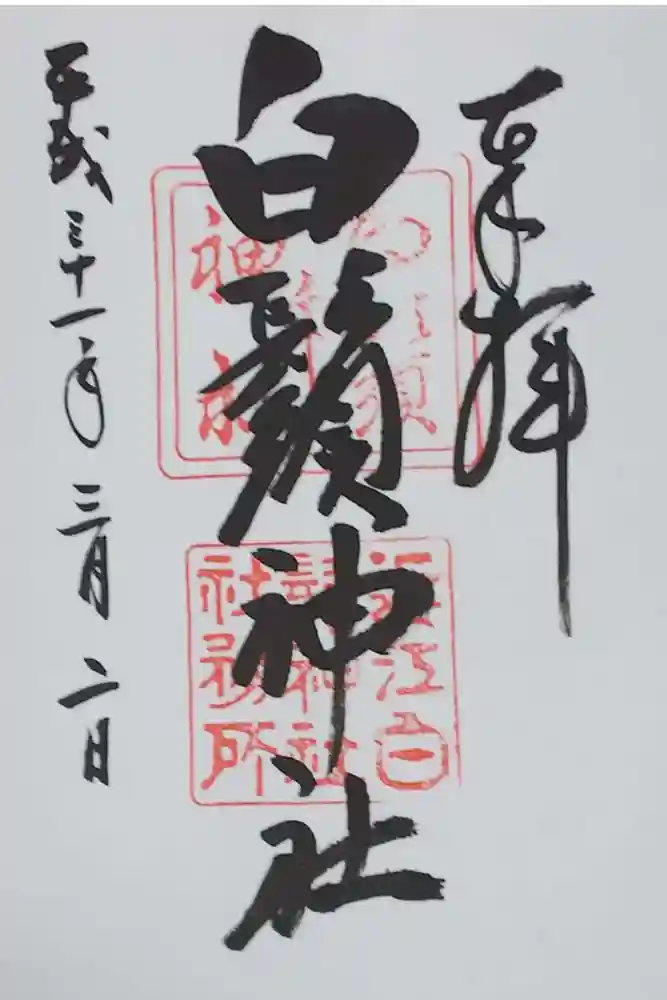 奉拝
白鬚神社
近江白
鬚神社
社務所
平成三十一年三月二日